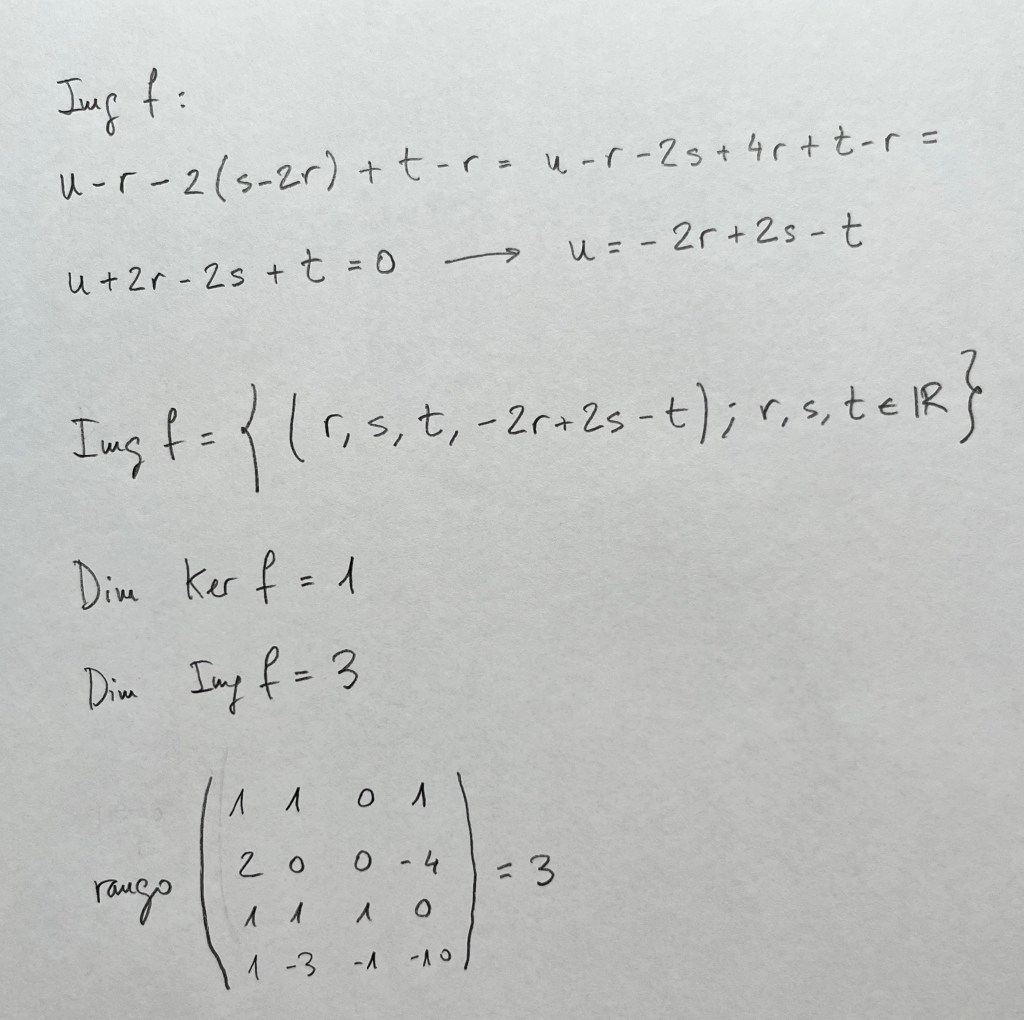 Img f:
u - r - 2(s-2r) + t - r = u - r - 2s + 4r + t - r =
u + 2r - 2s + t = 0 ⟶ u = - 2r + 2s - t
Img f = { ( r, s, t, -2r+2s-t ) ; r, s, t ∈ ℝ }
Dim Ker f = 1
Dim Img f = 3
rango ( 1 1 0 1
2 0 0 -4
1 1 1 0
1 -3 -1 -10 ) = 3